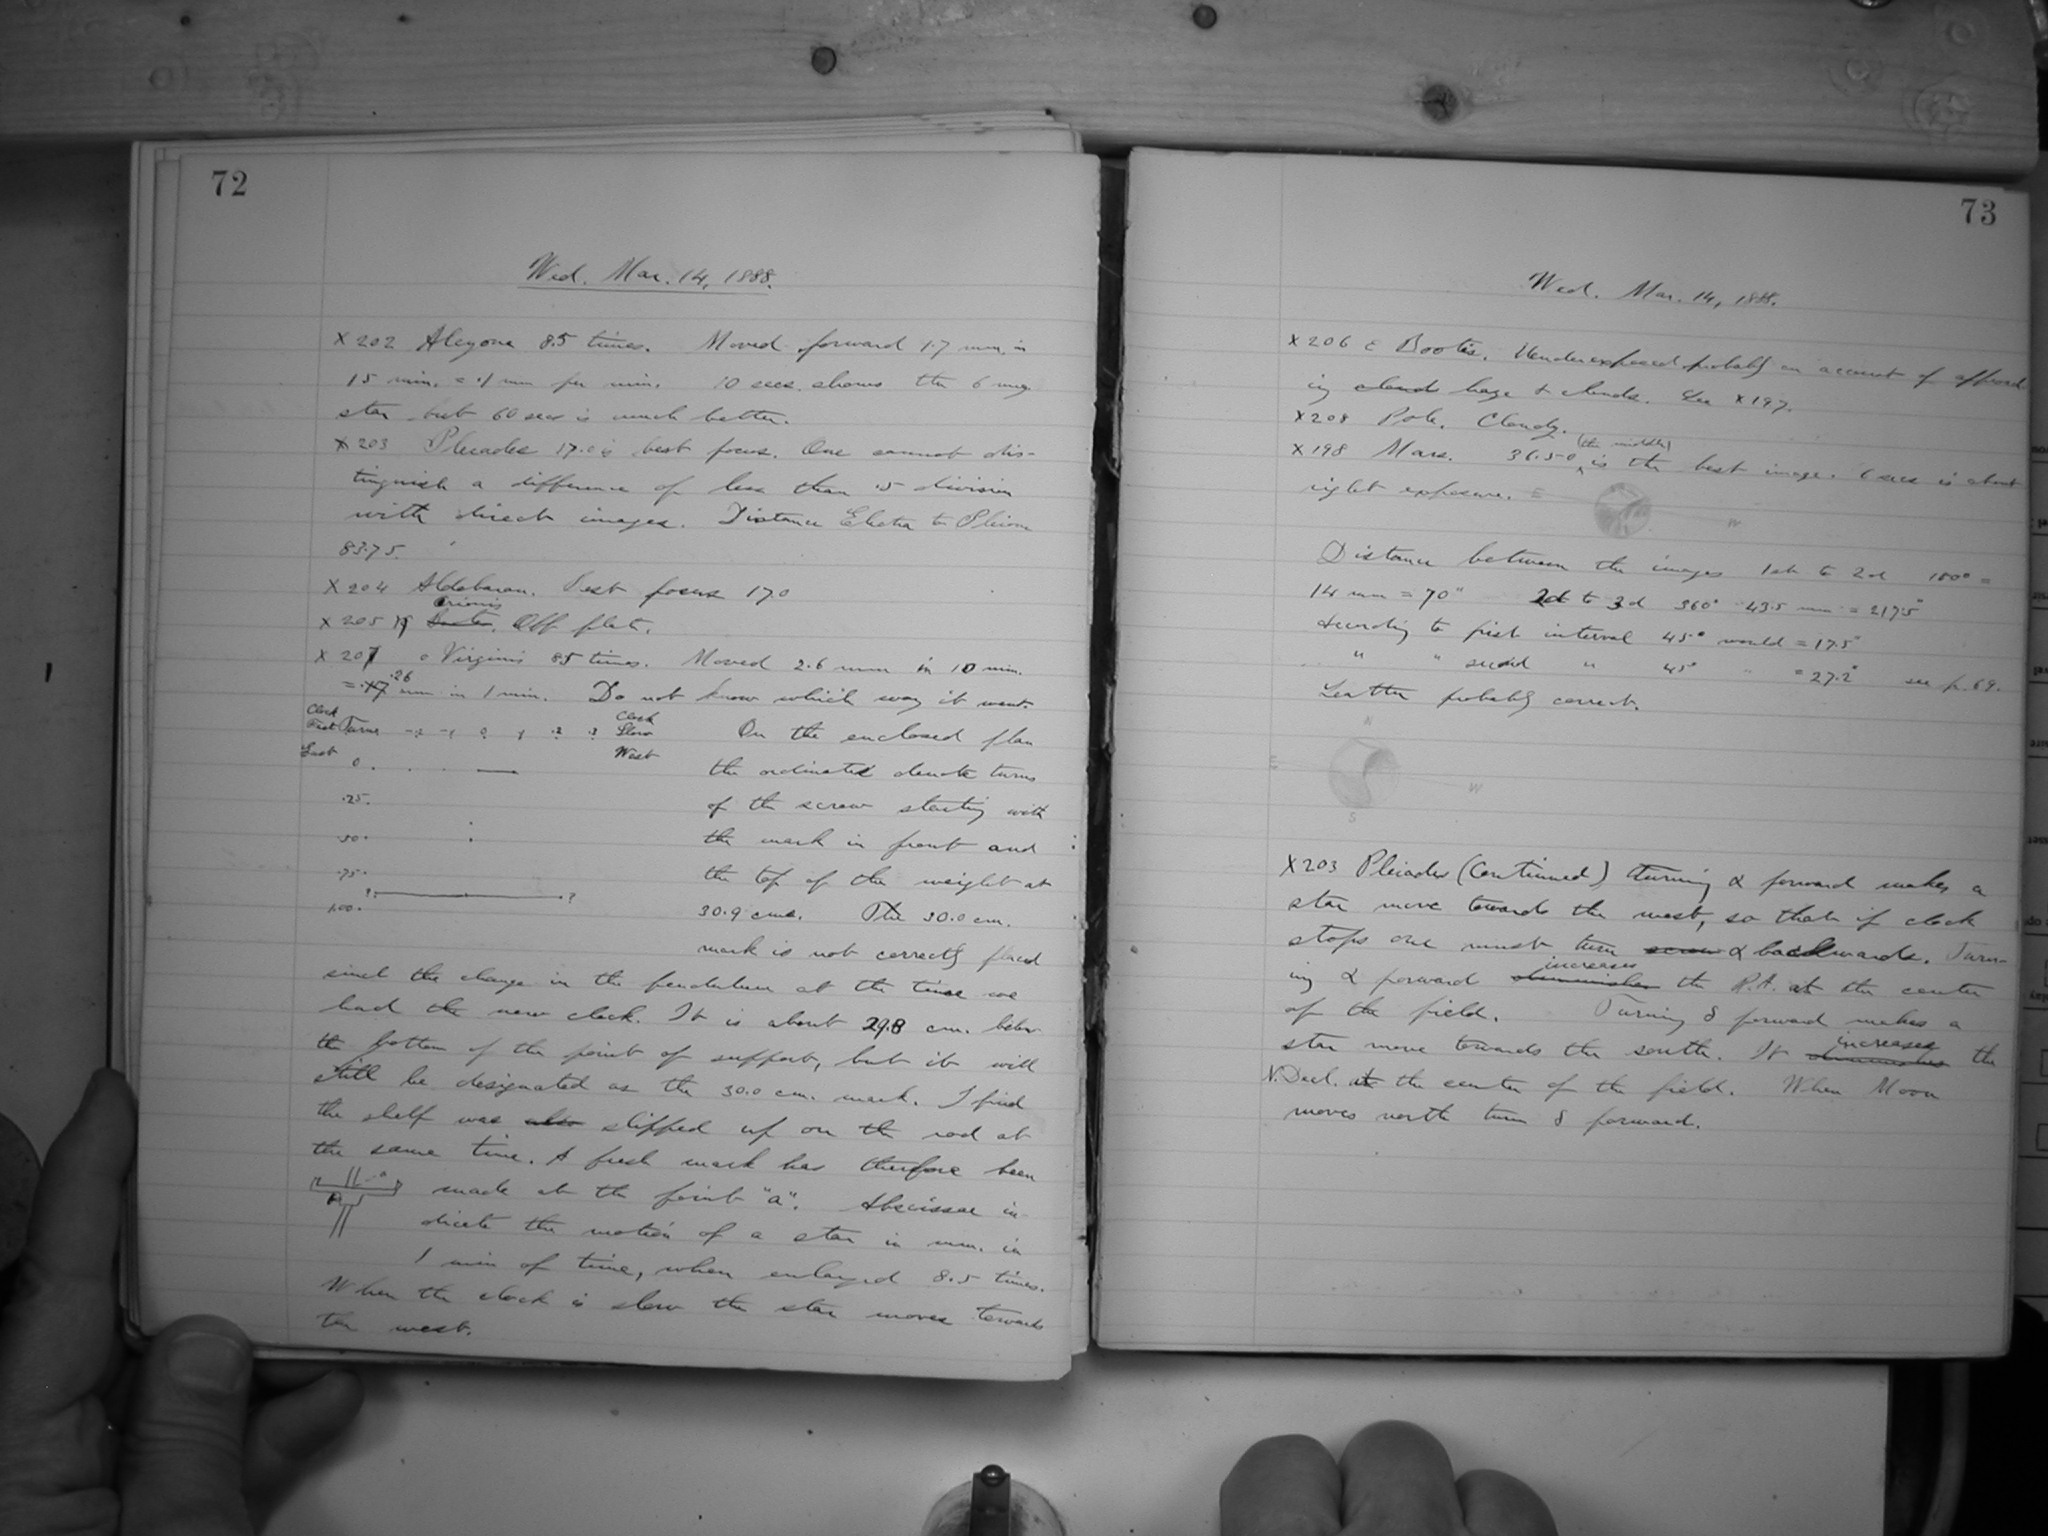 72
Wed. Mar. 14, 1888.
X 202 Alcyone 8.5 times. Moved forward 1.7 mm. in
15 min. = .1 mm per min. 10 secs. shows the 6 mag.
star but 60 secs is much better.
X 203 Pleiades 17.0 is best focus. One cannot dis-
tinguish a difference of less than .5 division
with direct images. Distance Electra to Pleione
83.75.
X 204 Aldebaran. Best focus 17.0
Orionis
X 205 Off plate.
X 207 o Virginis 8.5 times. Moved 2.6 mm in 10 min.
= .26 mm in 1 min. Do not know which way it went.
Clock Fast Turns Clock Slow On the enclosed plan
East 0. West the ordinates denote turns
.25. of the screw starting with
.50. the mark in front and
.75. the top of the weight at
1.00. ? ? 30.9 cms. The 30.0 cm.
mark is not correctly placed
since the change in the pendulum at the time we
had the new clock. It is about 29.8 cm. below
the bottom of the point of support, but it will
still be designated as the 30.0 cm. mark. I find
the shelf was also slipped up on the rod at
the same time. A fresh mark has therefore been
a
A
made at the point "a". Abscissae in-
dicate the motion of a star in mm. in
1 min of time, when enlarged 8.5 times.
When the clock is slow the star moves towards
the west.
73
Wed. Mar. 14, 1888.
X 206 ε Bootis. Underexposed probably on account of approach
ing clouds haze & clouds. See X 197.
X 208 Pole. Cloudy.
(the middle)
X 198 Mars. 36.50 is the best image. 6 secs is about
right exposure. E
W
Distance between the images 1st to 2d 180° =
14 mm = 70" 2d to 3d 360° 43.5 mm = 217.5"
According to first interval 45° would = 17.5"
" " second " 45° " = 27.2" see p. 69.
Latter probably correct.
N
E
W
S
X 203 Pleiades (Continued) Turning α forward makes a
star move towards the west, so that if clock
stops one must turn screw α backwards. Turn-
increases
ing α forward diminishes the R.A. at the center
of the field. Turning δ forward makes a
increases
star move towards the south. It diminishes the
N. Decl. at the center of the field. When Moon
moves north turn δ forward.